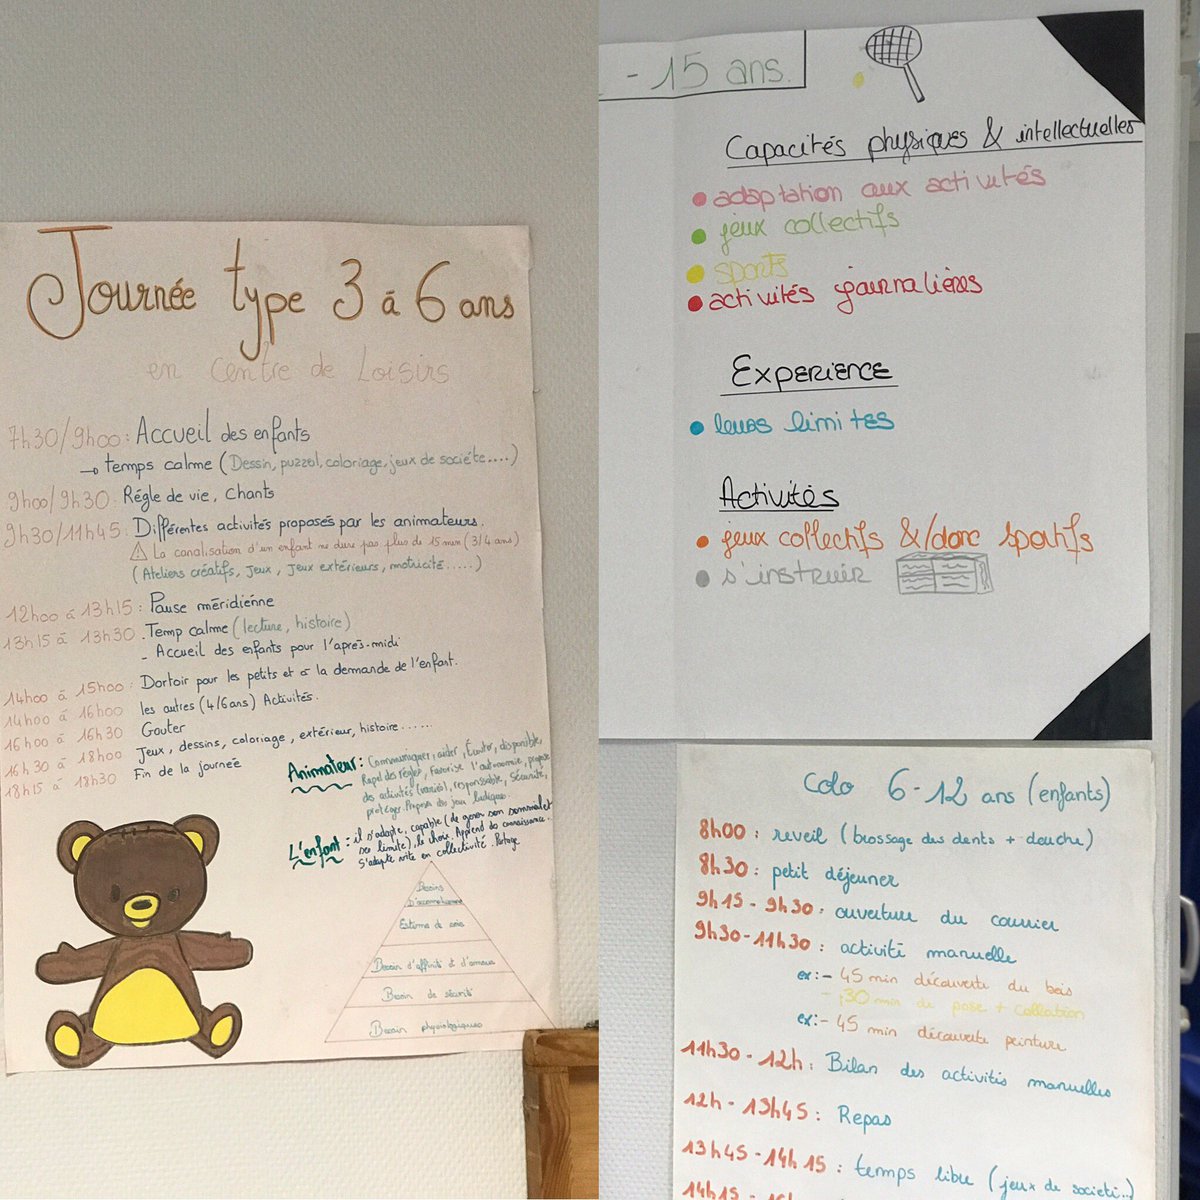 Journée type 3 à 6 ans
en centre de Loisirs
7h30/9h00: Accueil des enfants
→ temps calme (Dessin, puzzel, coloriage, jeux de sociéte....)
9h00/9h30: Régle de vie, Chants
9h30/11h45: Différentes activités proposés par les animateurs.
⚠ La canalisation d'un enfant ne dure pas plus de 15 min (3/4 ans)
(Ateliers créatifs, Jeux, Jeux extérieurs, motricité.....)
12h00 à 13h15: Pause méridienne
13h15 à 13h30. Temp calme (lecture, histoire)
- Accueil des enfants pour l'après-midi
14h00 à 15h00: Dortoir pour les petits et à la demande de l'enfant.
14h00 à 16h00 les autres (4/6ans) Activités.
16h00 à 16h30 Gouter
16h30 à 18h00 Jeux, dessins, coloriage, extérieur, histoire......
18h15 à 18h30 Fin de la journée
Animateur: Communiquer, aider, Écouter, disponible,
Rapel des règles, Favorise l'autonomie, propose
des activités (variés), responsable, Sécurité,
protéger. Propose des jeux ludiques.
L'enfant: il s'adapte, capable (de gerer son sommeil et
ses limite), le choix. Apprend des connaissance.
S'adapte vite en collectivité. Partage
Besoins
D'accomplissement
Estime de sois
Besoin d'affinité et d'amour
Besoin de sécurité
Besoin physiologiques
- 15 ans.
Capacités physiques & intellectuelles
• adaptation aux activités
• jeux collectifs
• sports
• activités journalières
Experience
• leurs limites
Activités
• jeux collectifs &/donc sportifs
• s'instruir
Colo 6-12 ans (enfants)
8h00: reveil (brossage des dents + douche)
8h30: petit déjeuner
9h15 - 9h30: ouverture du courrier
9h30-11h30: activité manuelle
ex:- 45 min découverte du bois
- 30 min de pose + collation
ex:- 45 min découverte peinture
11h30-12h: Bilan des activités manuelles
12h-13h45: Repas
13h45-14h15: temps libre (jeux de societi..)
14h15 -